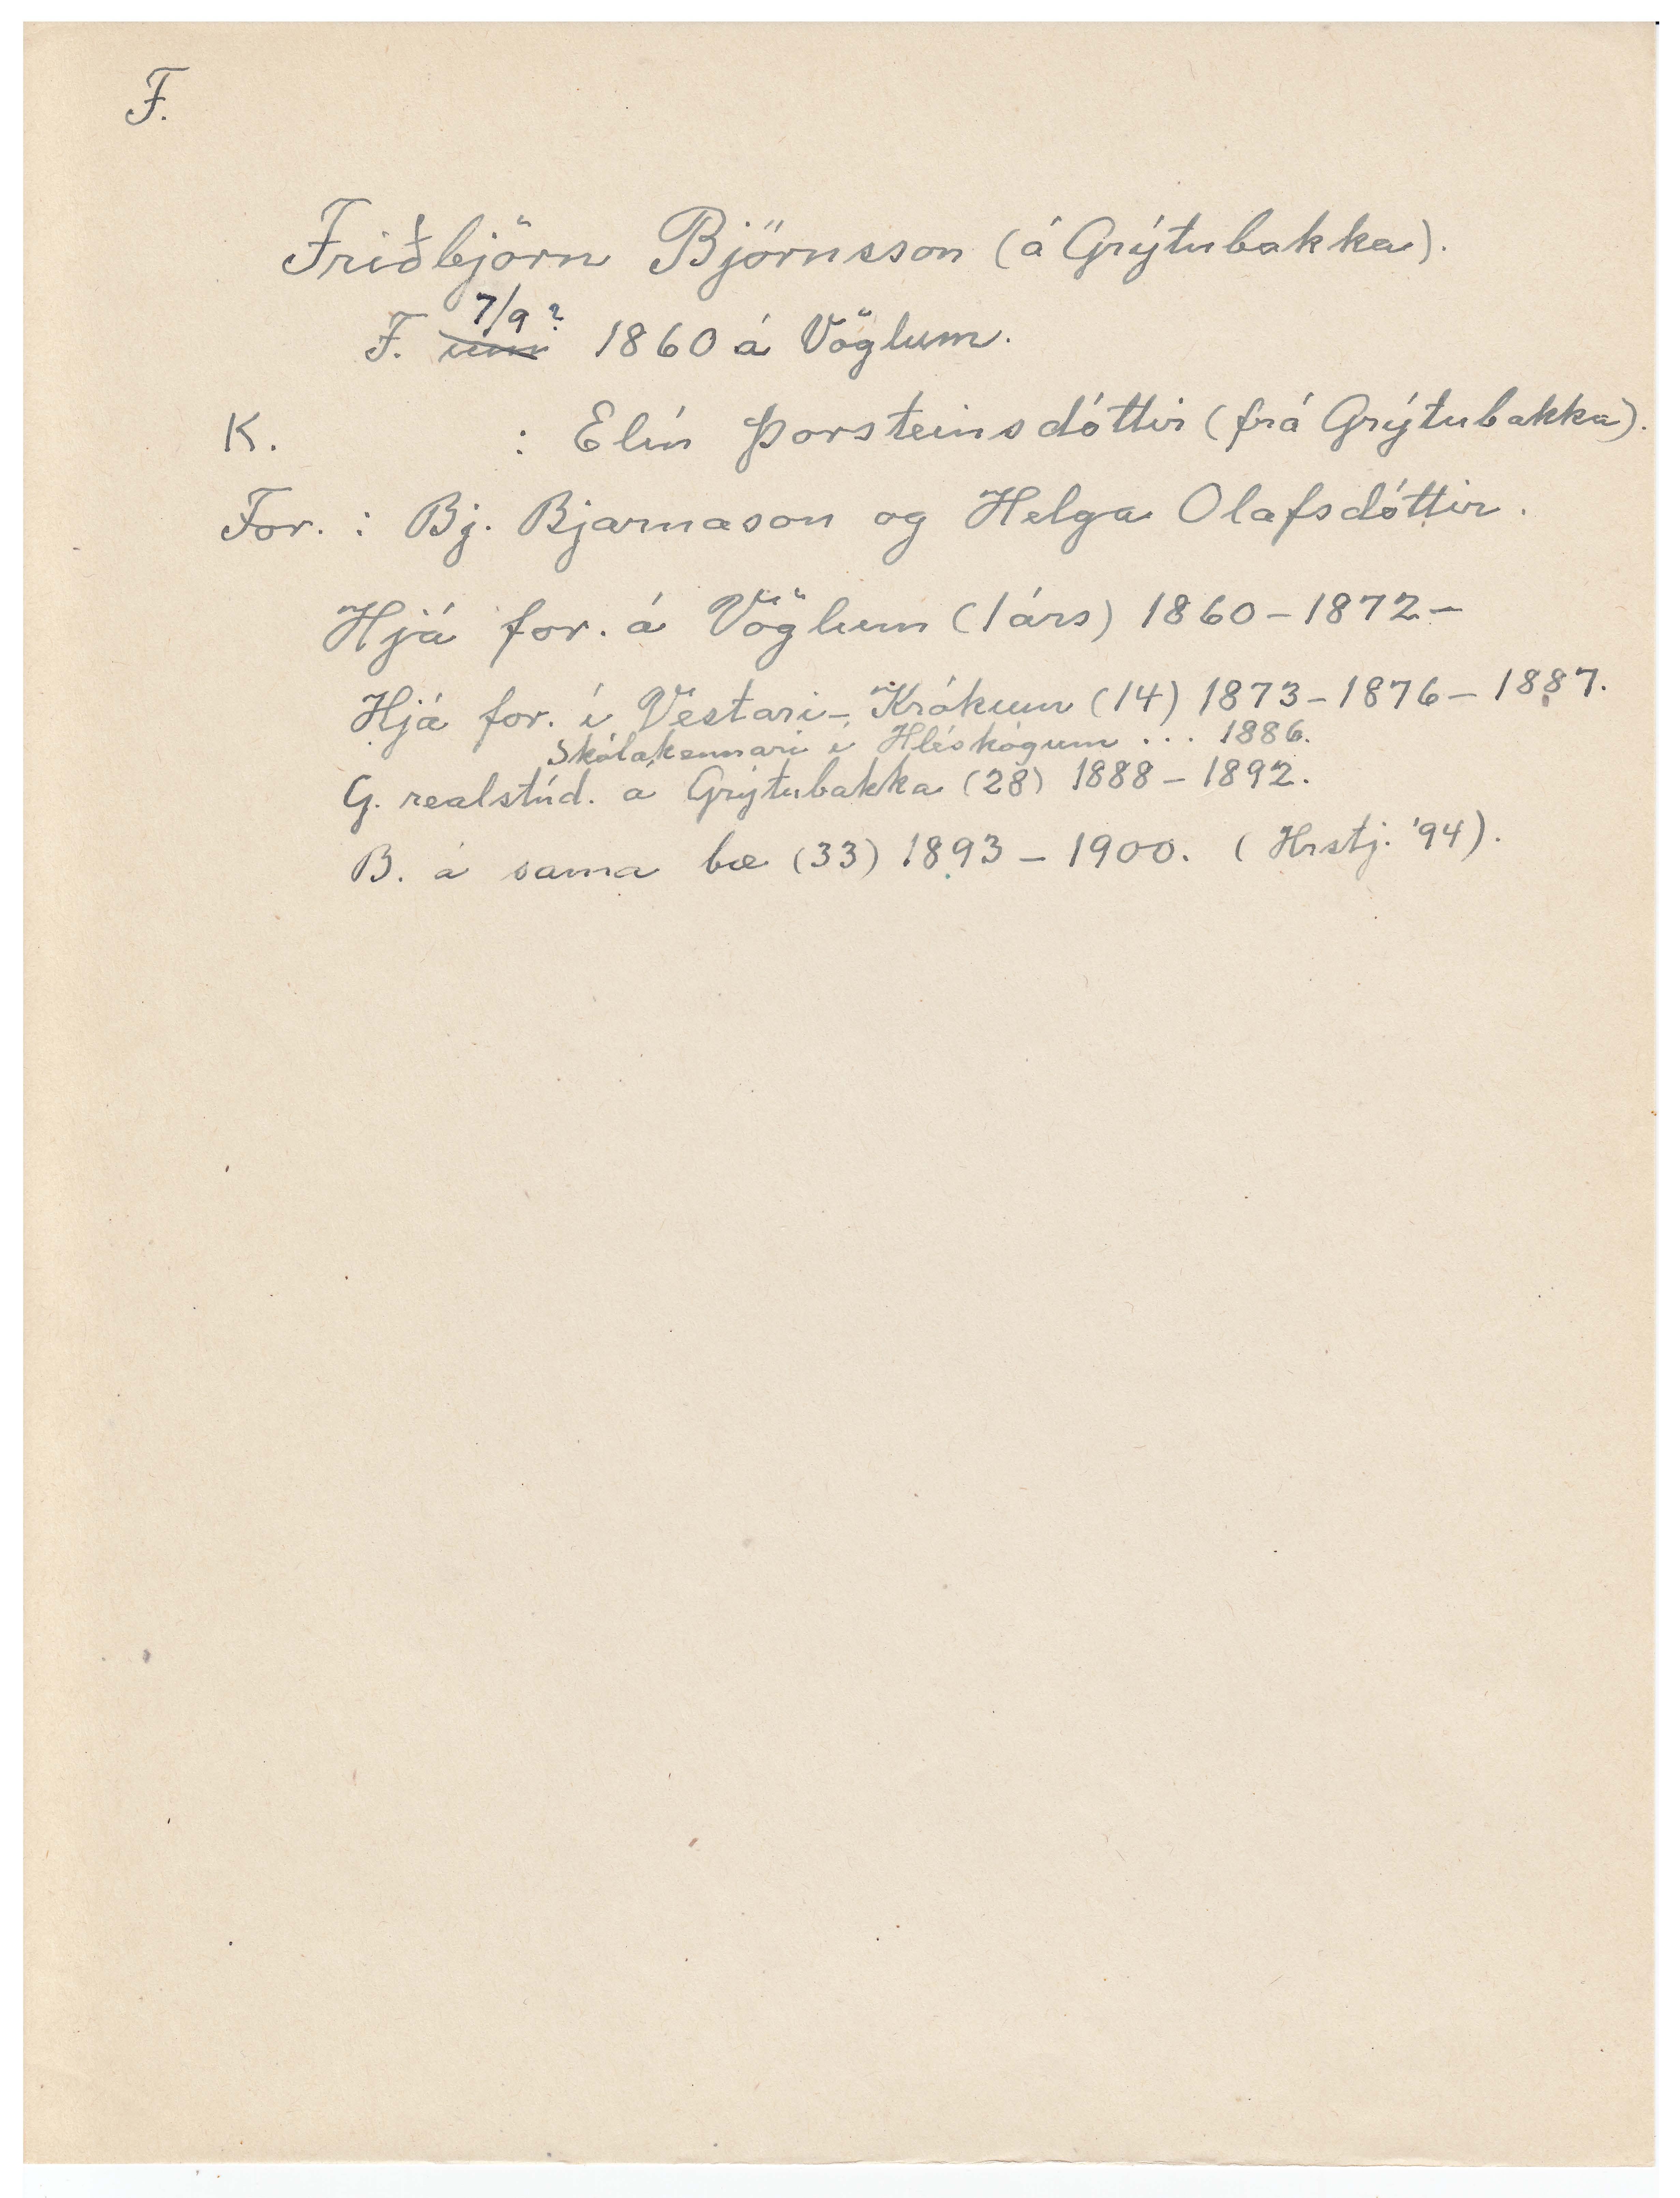 F.
Friðbjörn Björnsson (á Grýtubakka).
7/9 ?
F. um 1860 á Vöglum.
K. : Elín Þorsteinsdóttir (frá Grýtubakka).
For. : Bj. Bjarnason og Helga Olafsdóttir.
Hjá for. á Vöglum (1 árs) 1860 - 1872 -
Hjá for. í Vestari - Krókum (14) 1873 - 1876 - 1887.
Skólakennari í Hléskógum ... 1886.
G. realstúd. á Grýtubakka (28) 1888 - 1892.
B. á sama bæ (33) 1893 - 1900. (Hrstj. '94).